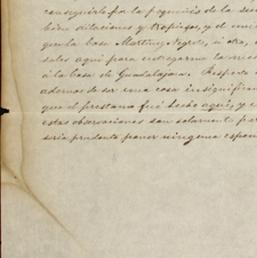 conseguirlo por la premura de la
bien dilaciones y tropiezos, y el
que la casa Martinez Negrete, ú otra,
sales aquí para entregarme la
á la casa de Guadalajara. Respecto
ademas de ser una cosa insignifican
que el prestamo fué hecho aquí, y
estas observaciones son solamente par
seria prudente poner ninguna espe